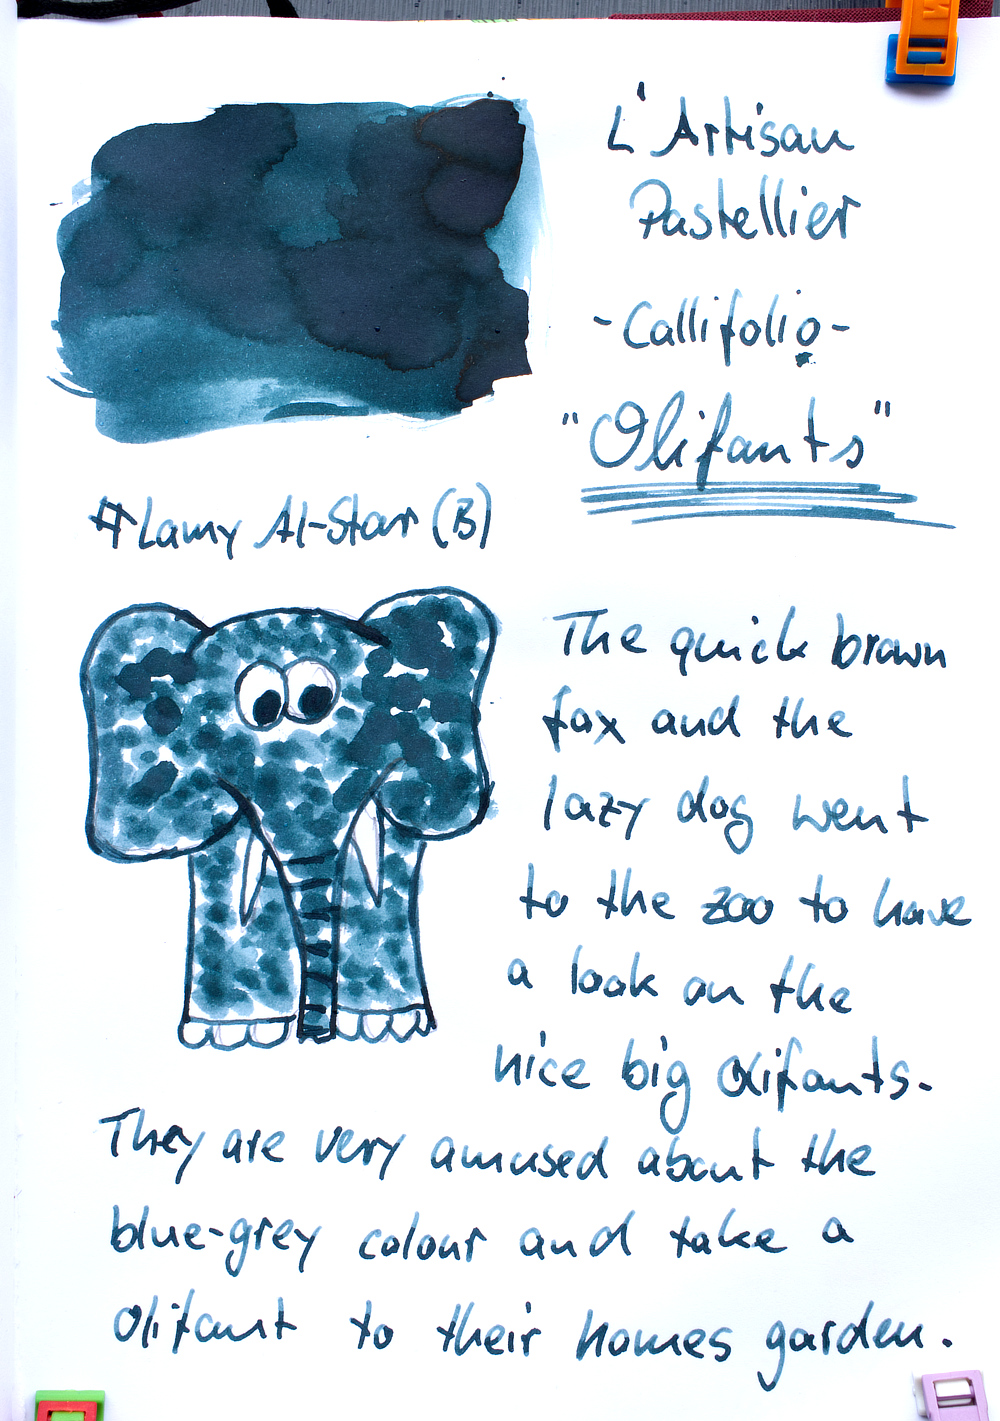 L'Artisan
Pastellier
-Callifolio-
"Olifants"
#Lamy Al-Star (B)
The quick brown
fox and the
lazy dog went
to the zoo to have
a look on the
nice big Olifants.
They are very amused about the
blue-grey colour and take a
Olifant to their homes garden.